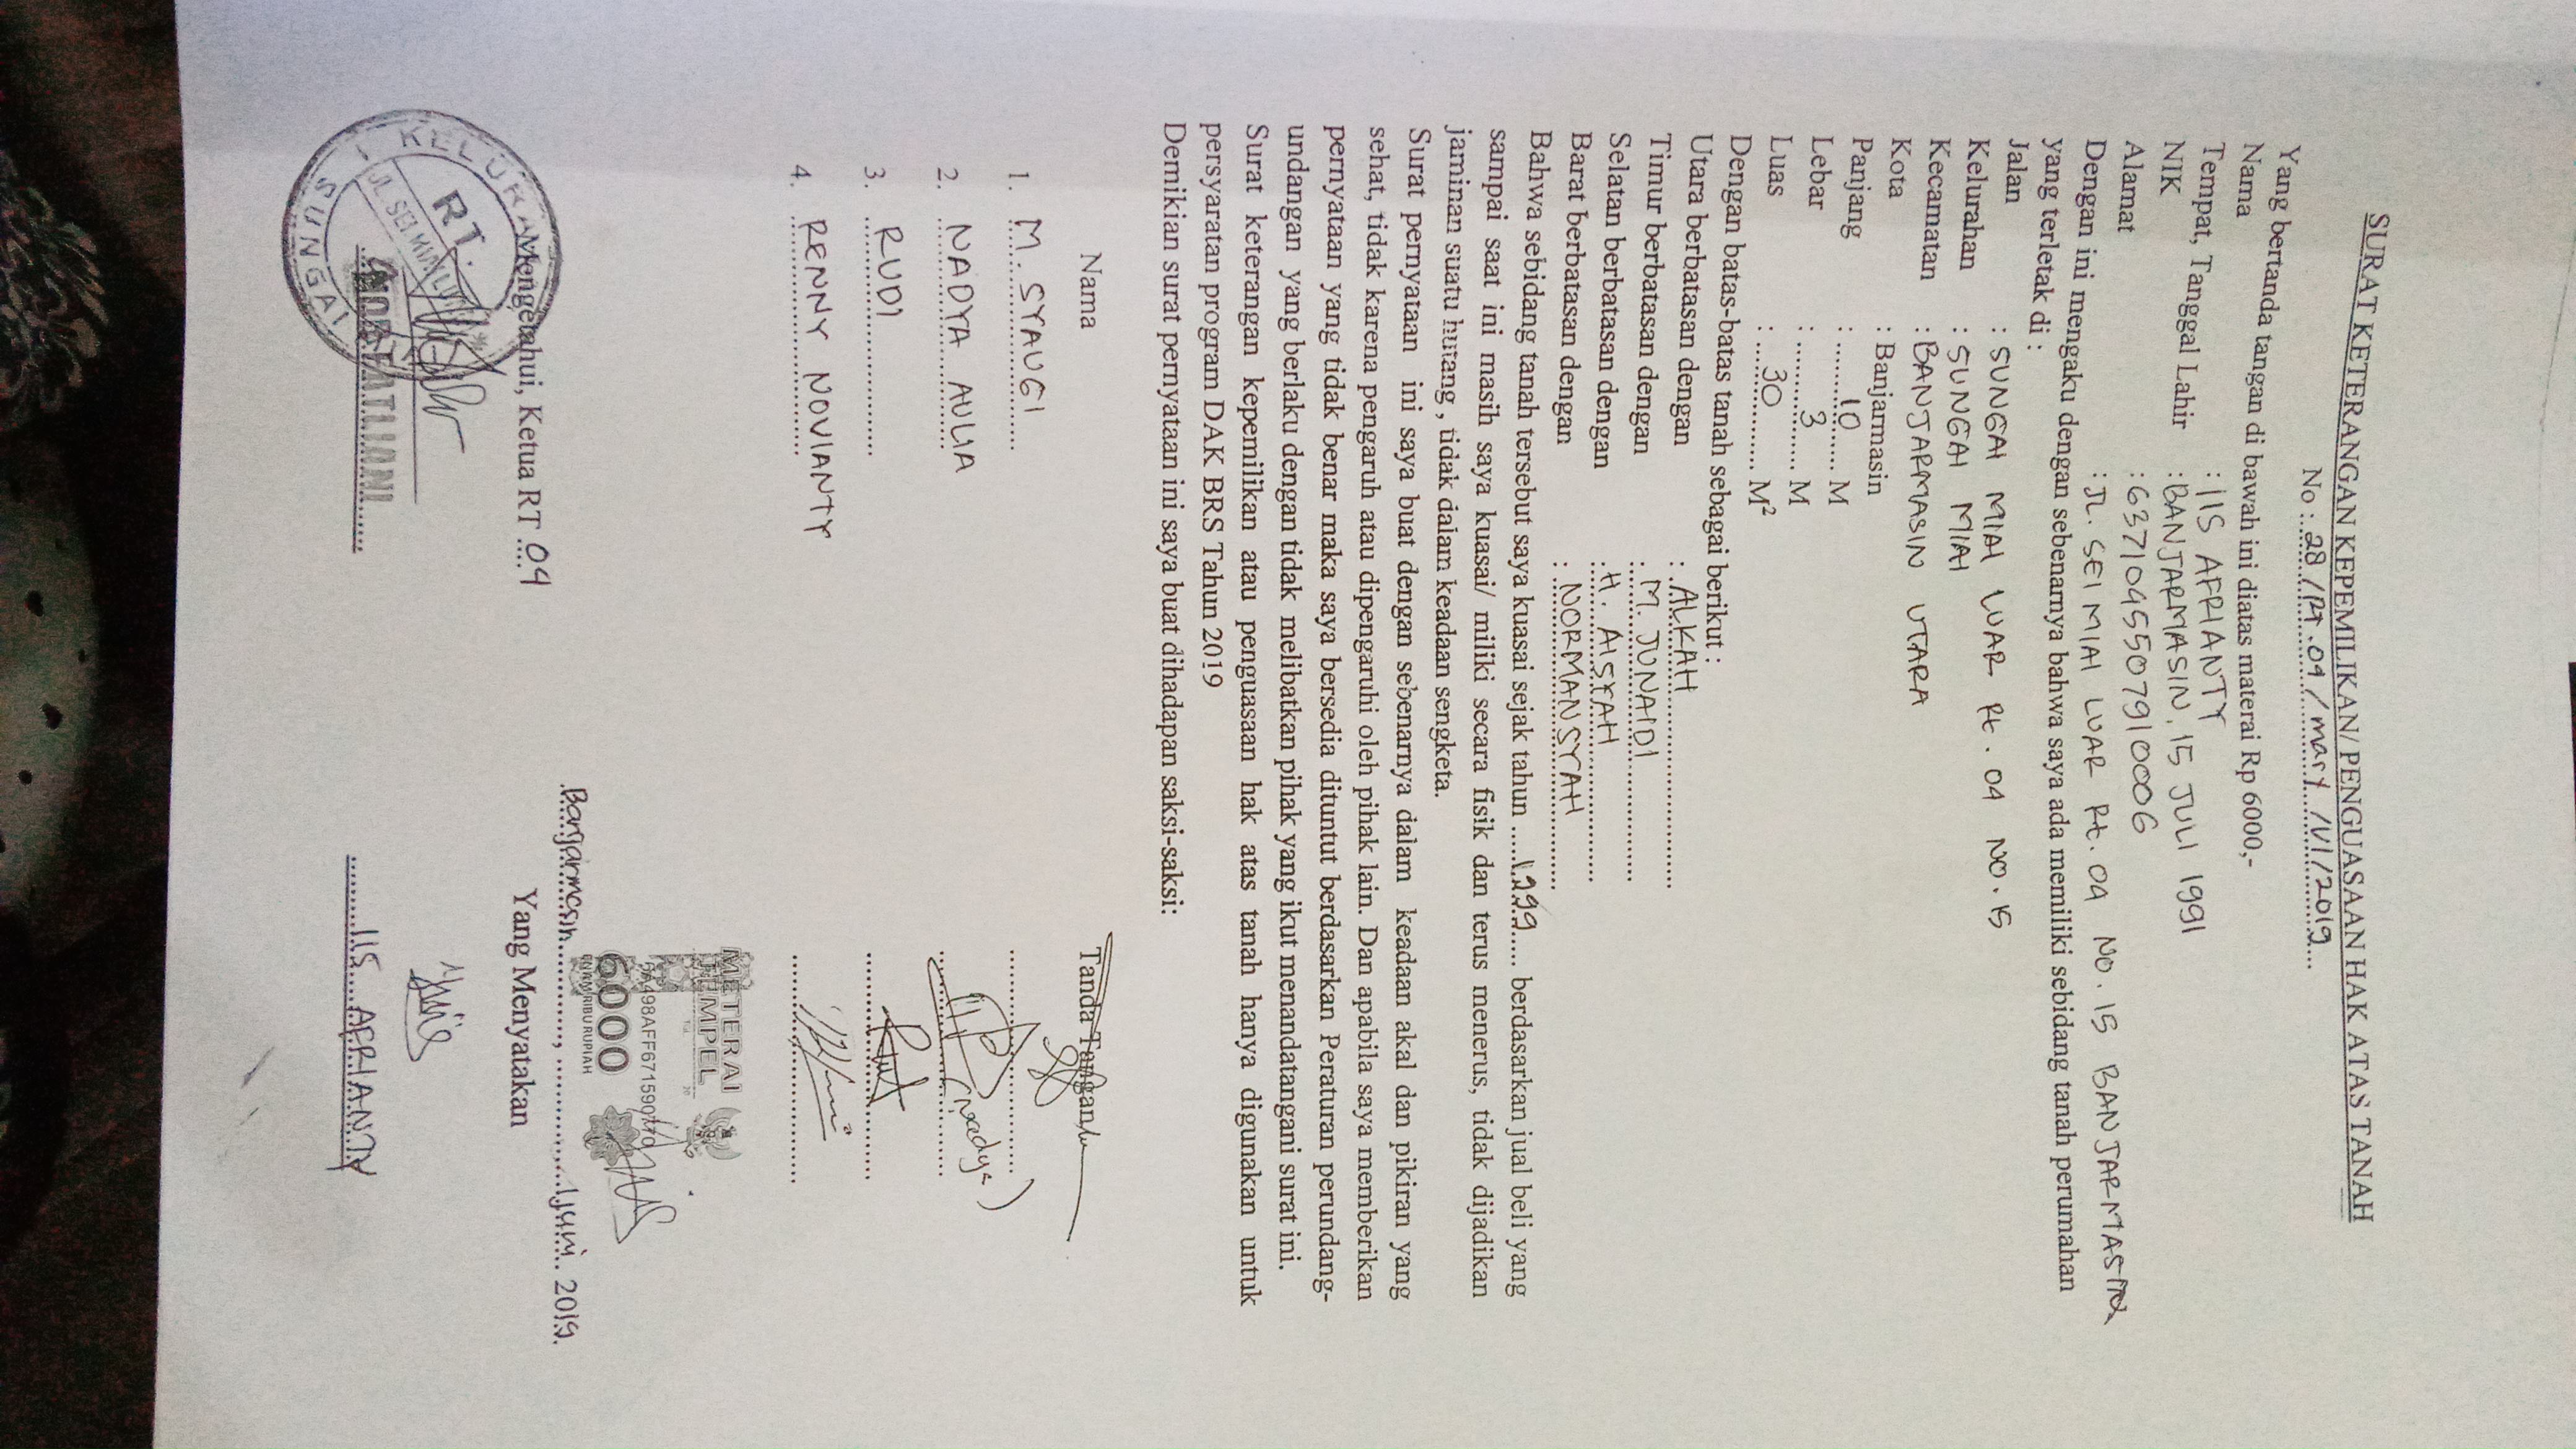 SURAT KETERANGAN KEPEMILIKAN/ PENGUASAAN HAK ATAS TANAH
No : 28 / Rt. 04 / mart / VI / 2019
Yang bertanda tangan di bawah ini diatas materai Rp 6000,-
Nama : IIS AFRIANTY
Tempat, Tanggal Lahir : BANJARMASIN, 15 JULI 1991
NIK : 6371045507910006
Alamat : JL. SEI MIAI LUAR Rt. 04 NO. 15 BANJARMASIN
Dengan ini mengaku dengan sebenarnya bahwa saya ada memiliki sebidang tanah perumahan
yang terletak di :
Jalan : SUNGAI MIAI LUAR Rt. 04 NO. 15
Kelurahan : SUNGAI MIAI
Kecamatan : BANJARMASIN UTARA
Kota : Banjarmasin
Panjang : 10 M
Lebar : 3 M
Luas : 30 M²
Dengan batas-batas tanah sebagai berikut :
Utara berbatasan dengan : ALKAH
Timur berbatasan dengan : M. JUNAIDI
Selatan berbatasan dengan : H. AISYAH
Barat berbatasan dengan : NORMANSYAH
Bahwa sebidang tanah tersebut saya kuasai sejak tahun 1999 berdasarkan jual beli yang
sampai saat ini masih saya kuasai/ miliki secara fisik dan terus menerus, tidak dijadikan
jaminan suatu hutang , tidak dalam keadaan sengketa.
Surat pernyataan ini saya buat dengan sebenarnya dalam keadaan akal dan pikiran yang
sehat, tidak karena pengaruh atau dipengaruhi oleh pihak lain. Dan apabila saya memberikan
pernyataan yang tidak benar maka saya bersedia dituntut berdasarkan Peraturan perundang-
undangan yang berlaku dengan tidak melibatkan pihak yang ikut menandatangani surat ini.
Surat keterangan kepemilikan atau penguasaan hak atas tanah hanya digunakan untuk
persyaratan program DAK BRS Tahun 2019
Demikian surat pernyataan ini saya buat dihadapan saksi-saksi:
Nama Tanda Tangan
1. M. SYAUGI
2. NADYA AULIA (nadya)
3. RUDI
4. RENNY NOVIANTY
METERAI
TEMPEL
6000
ENAM RIBU RUPIAH
Banjarmasin, 1 juni 2019.
Mengetahui, Ketua RT 04 Yang Menyatakan
KELURAHAN
RT.
JL. SEI MIAI LUAR
SUNGAI
IIS AFRIANTY